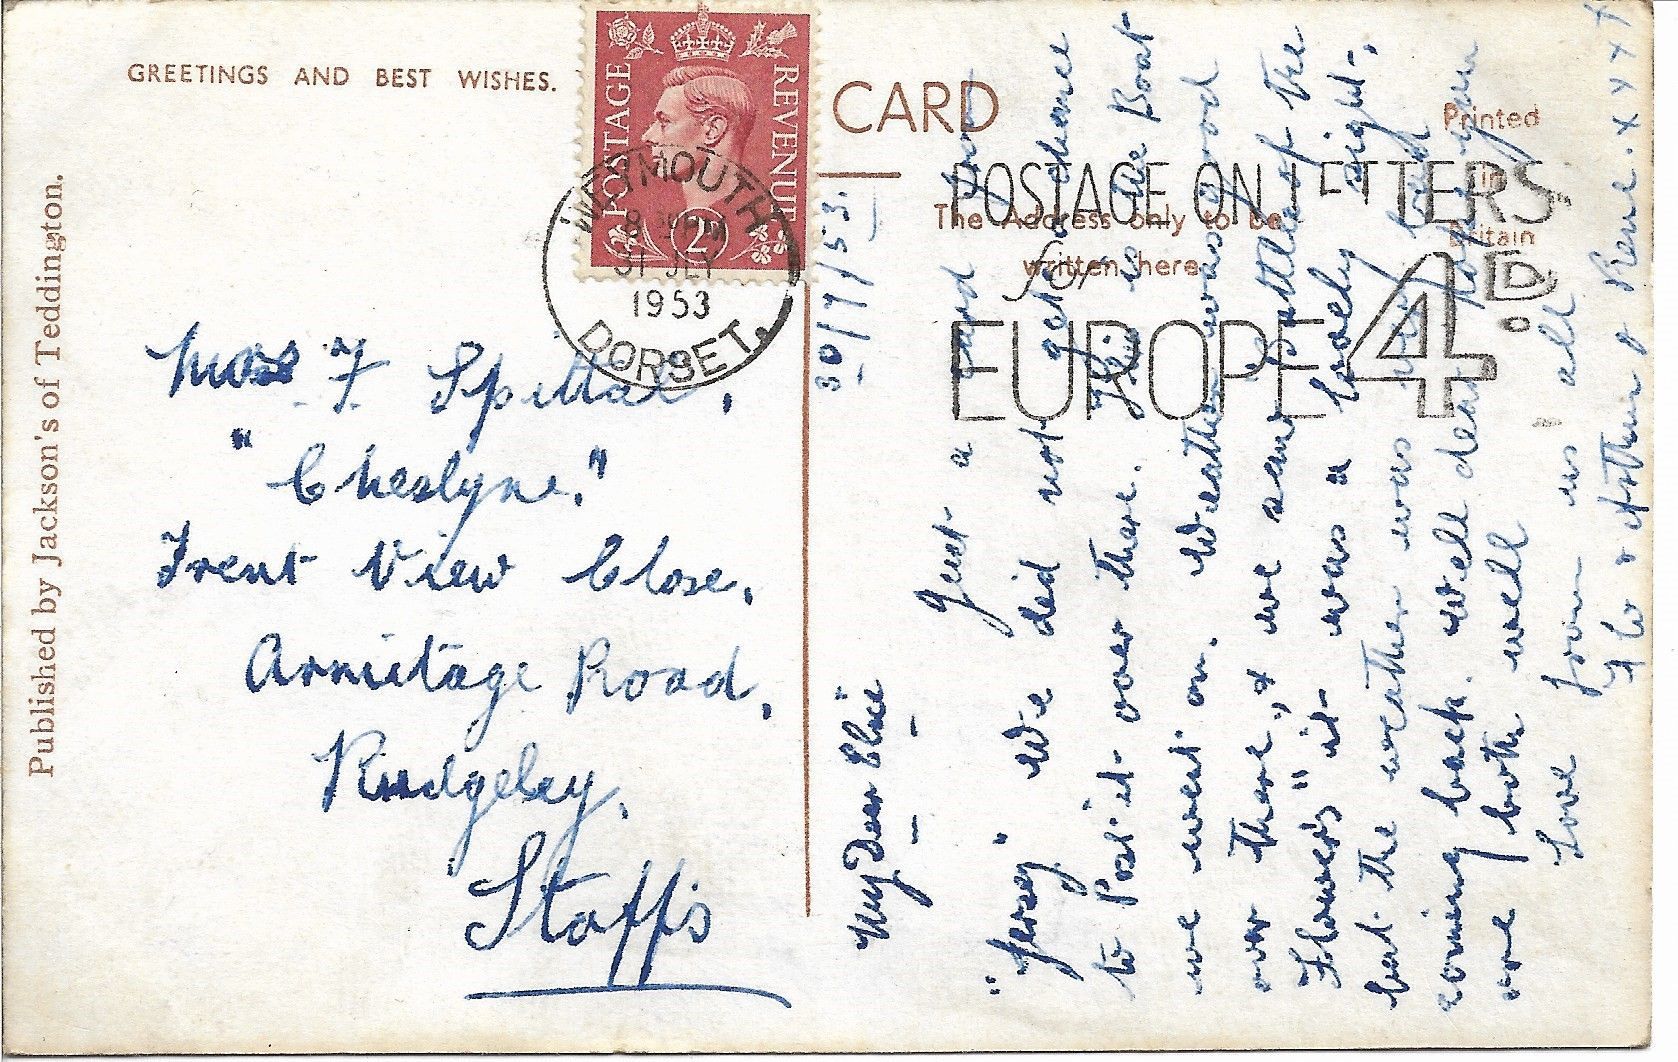 GREETINGS AND BEST WISHES.
CARD
Printed
in
Britain
The Address only to be
written here
Published by Jackson's of Teddington.
POSTAGE
REVENUE
2D
WEYMOUTH
8 30 PM
31 JLY
1953
DORSET.
POSTAGE ON LETTERS
for
EUROPE 4D.
Mrs F Spittal,
"Cheslyne."
Trent View Close,
Armitage Road,
Rudgeley,
Staffs
30/7/53.
My Dear Elsie
Just a card from
"Jersey" We did not get a chance
to Post it over there. This is the Boat
we went on. Weather was good
over there, & we saw "Battle of the
Flowers" it was a lovely sight,
but the weather was
coming back. well dear hope you
are both well
Love from us all
Flo & Arthur & Rene. x x x x